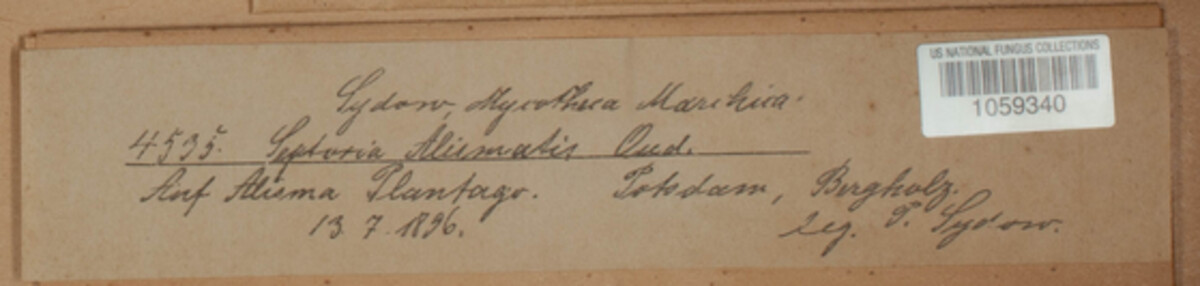 US NATIONAL FUNGUS COLLECTIONS
1059340
Sydow, Mycotheca Marchica.
4535. Septoria Alismatis Oud.
Auf Alisma Plantago. Potsdam, Bergholz.
13. 7. 1896. leg. P. Sydow.